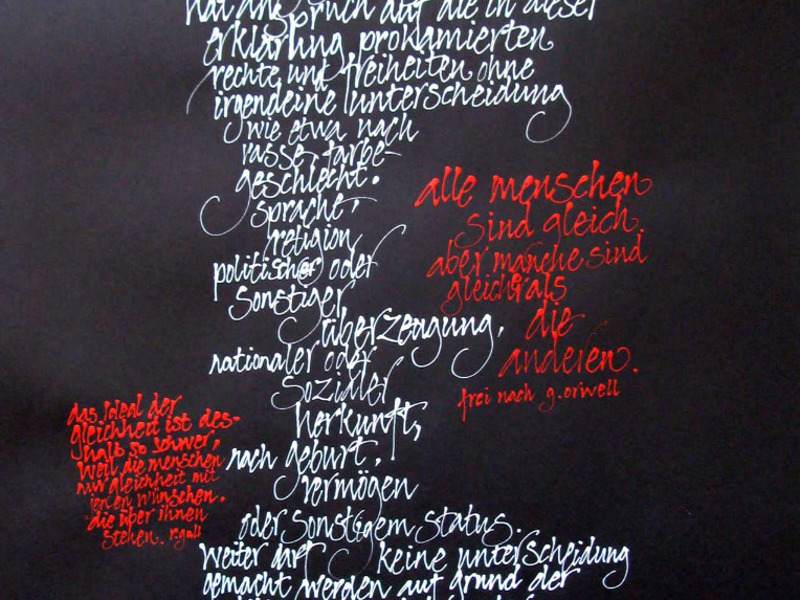 hat anspruch auf die in dieser
erklärung prokamierten
rechte und freiheiten ohne
irgendeine unterscheidung
wie etwa nach
rasse, farbe-
geschlecht.
sprache,
religion
politischer oder
sonstiger
überzeugung,
nationaler oder
sozialer
herkunft,
nach geburt,
vermögen
oder sonstigem status.
weiter darf keine unterscheidung
gemacht werden auf grund der
alle menschen
sind gleich.
aber manche sind
gleicher als
die
anderen.
frei nach g.orwell
das ideal der
gleichheit ist des-
halb so schwer,
weil die menschen
nur gleichheit mit
jenen wünschen.
die über ihnen
stehen.